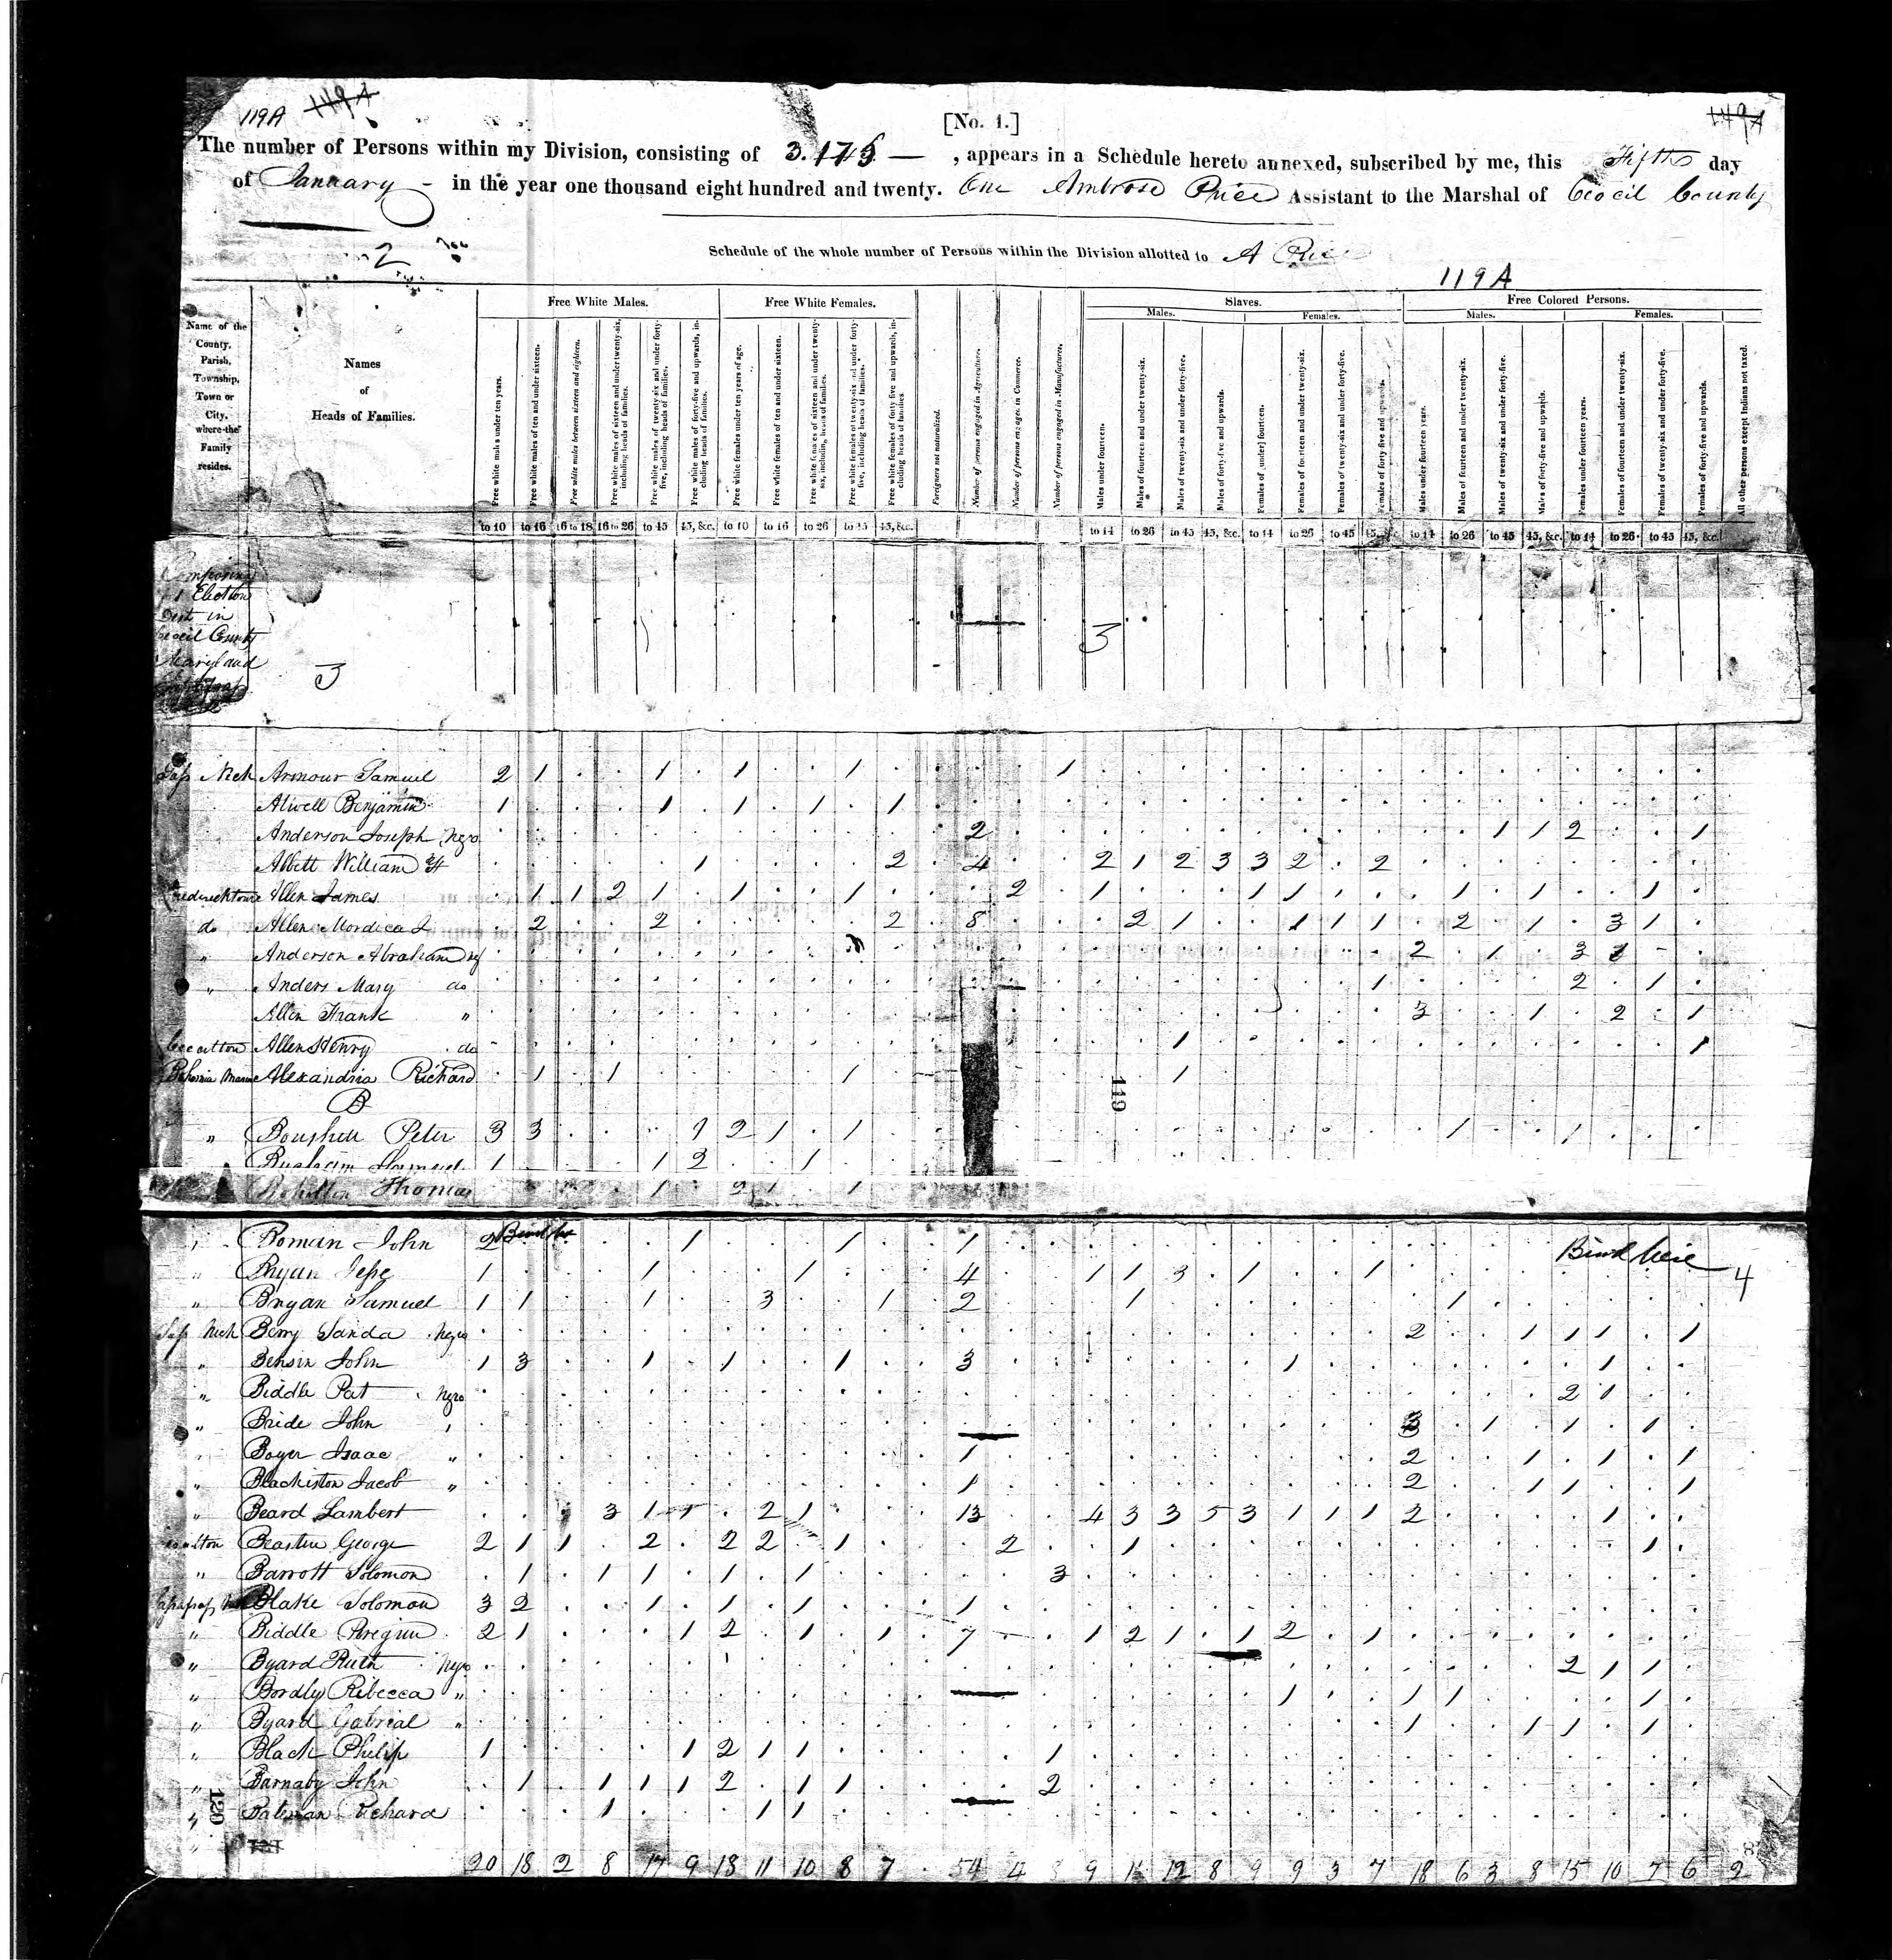 119A 149A
149A
[No. 1.]
The number of Persons within my Division, consisting of 3.175 — , appears in a Schedule hereto annexed, subscribed by me, this Fifth day
of January - in the year one thousand eight hundred and twenty. One Ambrose Price Assistant to the Marshal of Cecil County
2
Schedule of the whole number of Persons within the Division allotted to A Price
119A
Free White Males. Free White Females. Slaves. Free Colored Persons.
Males. Females. Males. Females.
Name of the County, Parish, Township, Town or City, where the Family resides.
Names of Heads of Families.
Free white males under ten years.
Free white males of ten and under sixteen.
Free white males between sixteen and eighteen.
Free white males of sixteen and under twenty-six, including heads of families.
Free white males of twenty-six and under forty-five, including heads of families.
Free white males of forty-five and upwards, including heads of families.
Free white females under ten years of age.
Free white females of ten and under sixteen.
Free white females of sixteen and under twenty-six, including heads of families.
Free white females of twenty-six and under forty-five, including heads of families.
Free white females of forty five and upwards, including heads of families.
Foreigners not naturalized.
Number of persons engaged in Agriculture.
Number of persons engaged in Commerce.
Number of persons engaged in Manufactures.
Males under fourteen.
Males of fourteen and under twenty-six.
Males of twenty-six and under forty-five.
Males of forty-five and upwards.
Females of under] fourteen.
Females of fourteen and under twenty-six.
Females of twenty-six and under forty-five.
Females of forty five and upwards.
Males under fourteen years.
Males of fourteen and under twenty-six.
Males of twenty-six and under forty-five.
Males of forty-five and upwards.
Females under fourteen years.
Females of fourteen and under twenty-six.
Females of twenty-six and under forty-five.
Females of forty-five and upwards.
All other persons except Indians not taxed.
to 10 to 16 16 to 18 16 to 26 to 45 45, &c. to 10 to 16 to 26 to 45 45, &c. to 14 to 26 to 45 45, &c. to 14 to 26 to 45 45, &c. to 14 to 26 to 45 45, &c. to 14 to 26 to 45 45, &c.
Composing
1 Election
Dist in
Cecil County
Maryland
3 3
Sas Neck Armour Samuel 2 1 1 1 1 1
Atwell Benjamin 1 1 1 1 1
Anderson Joseph Negro 2 1 1 2 1
Abbett William 1 2 4 2 1 2 3 3 2 2
Fredericktown Allen James 1 1 2 1 1 1 2 1 1 1 1 1 1
do Allen Mordica 2 2 2 8 2 1 1 1 1 2 1 3 1
" Anderson Abraham 2 1 3
" Anders Mary do 1 2 1
Allen Frank " 3 1 2 1
Cecilton Allen Henry do 1 1
Bohemia Manor Alexandria Richard 1 1 1 1
B
119
" Boushell Peter 3 3 1 2 1 1 1 1
Samuel 1 1 2 1
Thomas 1 2 1 1
" Boman John 2 1 1 1
Bind here
" Bryan Jesse 1 1 1 4 1 1 3 1 1 4
" Bryan Samuel 1 1 1 3 1 2 1 1
Sas Neck Berry Sanda Negro 2 1 1 1 1
" Bensin John 1 3 1 1 1 3 1 1
" Biddle Pat Negro 2 1
" Bride John 3 1 1 1
Boyer Isaac " 1 2 1 1 1
" Blackiston Jacob " 1 2 1 1 1
" Beard Lambert 3 1 1 2 1 13 4 3 3 5 3 1 1 1 2 1
Beastin George 2 1 1 2 2 2 1 2 1 1
" Barrott Solomon 1 1 1 1 1 3
Blake Solomon 3 2 1 1 1 1
" Biddle Peregrin 2 1 1 2 1 1 7 1 2 1 1 2 1
" Byard Ruth Negro 2 1 1
" Bordly Rebecca " 1 1 1 1
" Byard Gabrial " 1 1 1 1
" Black Philip 1 1 2 1 1 1
" Barnaby John 1 1 1 1 2 1 1 2
" Bateman Richard 1 1 1
120
20 18 2 8 17 9 18 11 10 8 7 54 4 8 9 11 12 8 9 9 3 7 18 6 3 8 15 10 7 6 2